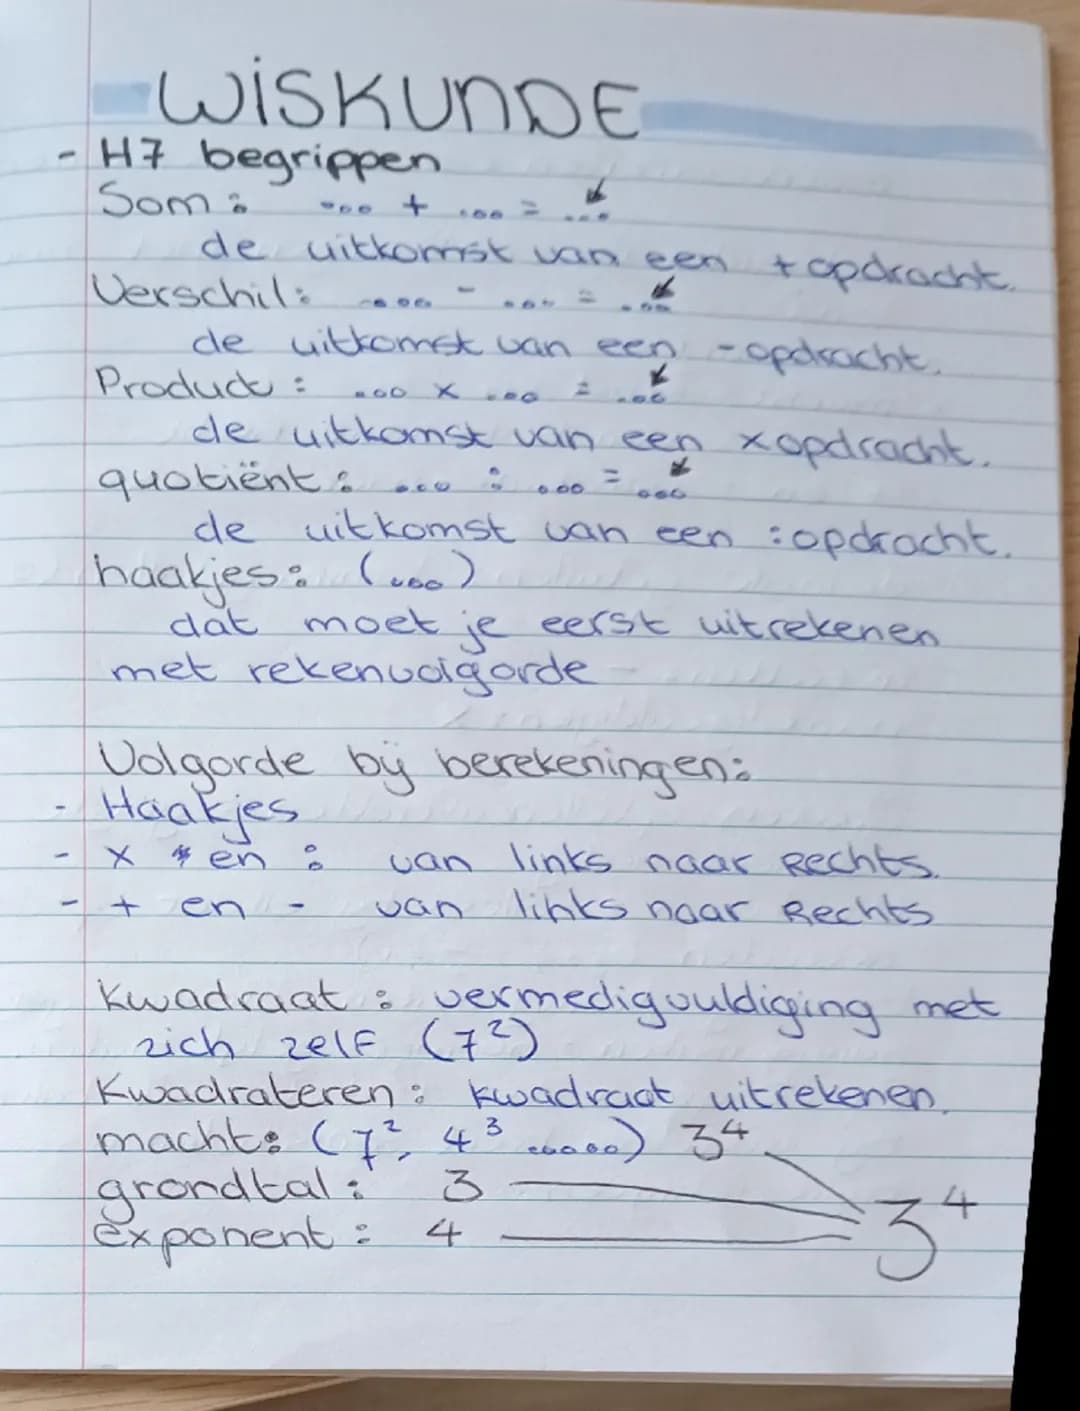 WiSKUNDE
- H7 begrippen
Som: .... + .... = ....
de uitkomst van een + opdracht.
Verschil: .... - .... = ....
de uitkomst van een - opdracht.
Product: .... x .... = ....
de uitkomst van een x opdracht.
quotiënt: .... : .... = ....
de uitkomst van een : opdracht.
haakjes: (....)
dat moet je eerst uitrekenen
met rekenvolgorde
Volgorde bij berekeningen:
- Haakjes
- x en : van links naar Rechts.
- + en - van links naar Rechts
Kwadraat: vermedigvuldiging met
zich zelf (7²)
Kwadrateren: kwadraat uitrekenen.
macht: (7², 4³ ......) 3⁴
grondtal: 3 3⁴
exponent: 4